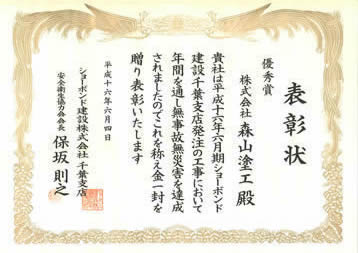 表彰状
優秀賞
株式会社 森山塗工殿
貴社は平成十六年六月期ショーボンド
建設千葉支店発注の工事において
年間を通し無事故無災害を達成
されましたのでこれを称え金一封を
贈り表彰いたします
平成十六年六月四日
ショーボンド建設株式会社千葉支店
安全衛生協力会会長 保坂則之